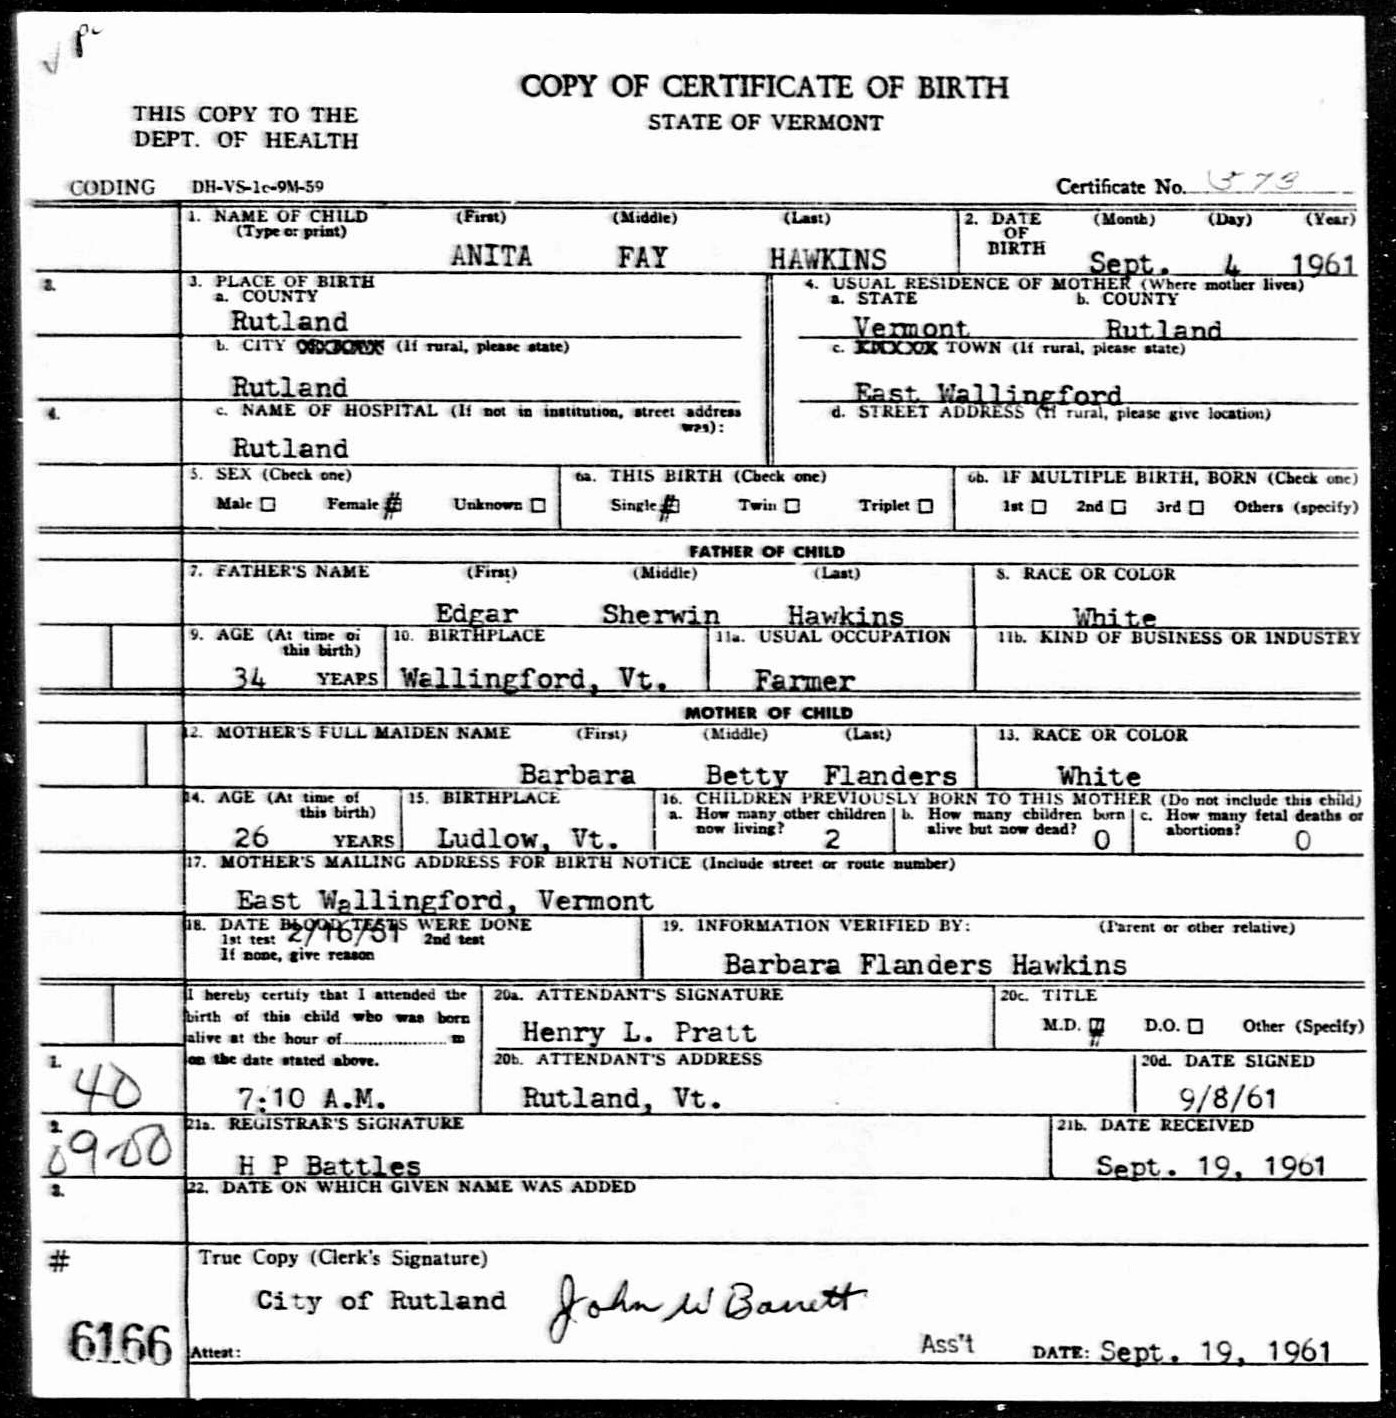 COPY OF CERTIFICATE OF BIRTH
THIS COPY TO THE
DEPT. OF HEALTH
STATE OF VERMONT
CODING DH-VS-1c-9M-59 Certificate No. 573
1. NAME OF CHILD (First) (Middle) (Last)
(Type or print)
ANITA FAY HAWKINS
2. DATE OF BIRTH (Month) (Day) (Year)
Sept. 4 1961
3. PLACE OF BIRTH
a. COUNTY
Rutland
b. CITY (If rural, please state)
Rutland
c. NAME OF HOSPITAL (If not in institution, street address
was):
Rutland
4. USUAL RESIDENCE OF MOTHER (Where mother lives)
a. STATE b. COUNTY
Vermont Rutland
c. TOWN (If rural, please state)
East Wallingford
d. STREET ADDRESS (If rural, please give location)
5. SEX (Check one)
Male Female # Unknown
6a. THIS BIRTH (Check one)
Single # Twin Triplet
6b. IF MULTIPLE BIRTH, BORN (Check one)
1st 2nd 3rd Others (specify)
FATHER OF CHILD
7. FATHER'S NAME (First) (Middle) (Last)
Edgar Sherwin Hawkins
8. RACE OR COLOR
White
9. AGE (At time of
this birth)
34 YEARS
10. BIRTHPLACE
Wallingford, Vt.
11a. USUAL OCCUPATION
Farmer
11b. KIND OF BUSINESS OR INDUSTRY
MOTHER OF CHILD
12. MOTHER'S FULL MAIDEN NAME (First) (Middle) (Last)
Barbara Betty Flanders
13. RACE OR COLOR
White
14. AGE (At time of
this birth)
26 YEARS
15. BIRTHPLACE
Ludlow, Vt.
16. CHILDREN PREVIOUSLY BORN TO THIS MOTHER (Do not include this child)
a. How many other children
now living? 2
b. How many children born
alive but now dead? 0
c. How many fetal deaths or
abortions? 0
17. MOTHER'S MAILING ADDRESS FOR BIRTH NOTICE (Include street or route number)
East Wallingford, Vermont
18. DATE BLOOD TESTS WERE DONE
1st test 2/16/61 2nd test
If none, give reason
19. INFORMATION VERIFIED BY: (Parent or other relative)
Barbara Flanders Hawkins
I hereby certify that I attended the
birth of this child who was born
alive at the hour of m
on the date stated above.
7:10 A.M.
20a. ATTENDANT'S SIGNATURE
Henry L. Pratt
20c. TITLE
M.D. # D.O. Other (Specify)
20b. ATTENDANT'S ADDRESS
Rutland, Vt.
20d. DATE SIGNED
9/8/61
1.
40
2.
09-00
21a. REGISTRAR'S SIGNATURE
H P Battles
21b. DATE RECEIVED
Sept. 19, 1961
3.
22. DATE ON WHICH GIVEN NAME WAS ADDED
#
6166
True Copy (Clerk's Signature)
City of Rutland John W Barrett
Attest: Ass't DATE: Sept. 19, 1961